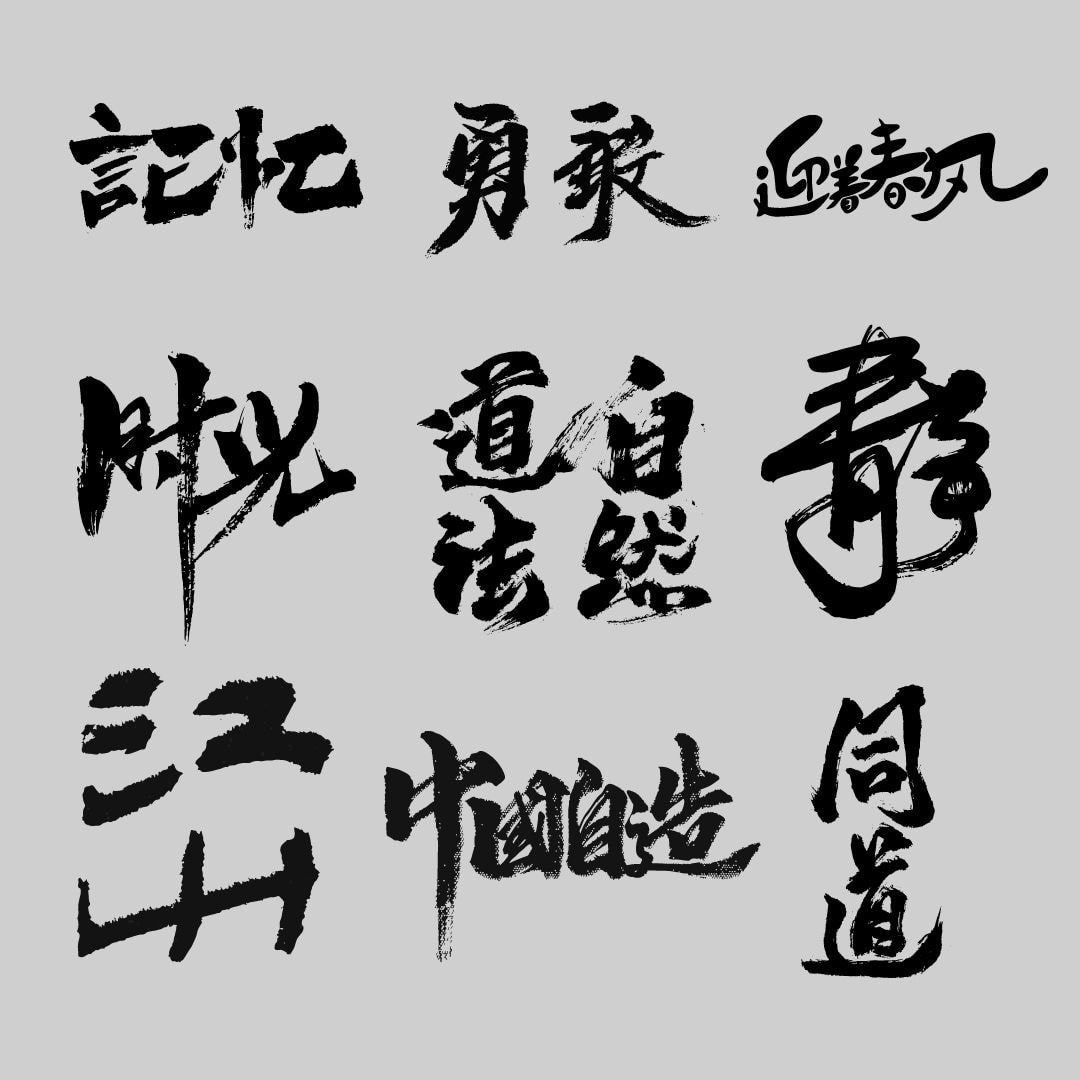 記忆
勇敢
迎着春风
时光
道法
自然
静
江
山
中國自造
同
道